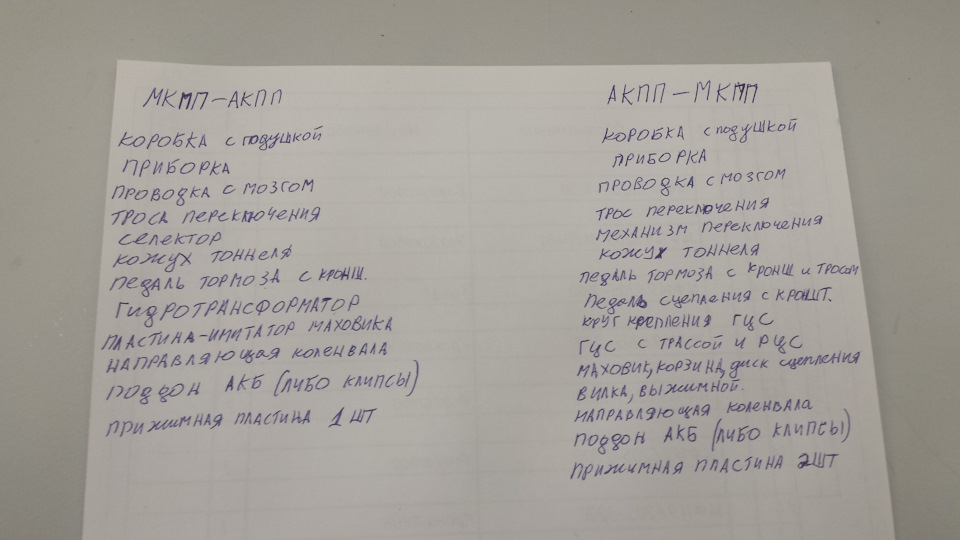 МКПП – АКПП
КОРОБКА с подушкой
ПРИБОРКА
ПРОВОДКА С МОЗГОМ
ТРОСА ПЕРЕКЛЮЧЕНИЯ
СЕЛЕКТОР
КОЖУХ ТОННЕЛЯ
ПЕДАЛЬ ТОРМОЗА С КРОНШ.
ГИДРОТРАНСФОРМАТОР
ПЛАСТИНА-ИМИТАТОР МАХОВИКА
НАПРАВЛЯЮЩАЯ КОЛЕНВАЛА
ПОДДОН АКБ (ЛИБО КЛИПСЫ)
ПРИЖИМНАЯ ПЛАСТИНА 1 ШТ
АКПП – МКПП
КОРОБКА с подушкой
ПРИБОРКА
ПРОВОДКА С МОЗГОМ
ТРОС ПЕРЕКЛЮЧЕНИЯ
МЕХАНИЗМ ПЕРЕКЛЮЧЕНИЯ
КОЖУХ ТОННЕЛЯ
ПЕДАЛЬ ТОРМОЗА С КРОНШ И ТРОСОМ
ПЕДАЛЬ СЦЕПЛЕНИЯ С КРОНШТ.
КРУГ КРЕПЛЕНИЯ ГЦС
ГЦС С ТРАССОЙ И РЦС
МАХОВИК, КОРЗИНА, ДИСК СЦЕПЛЕНИЯ
ВИЛКА, ВЫЖИМНОЙ.
НАПРАВЛЯЮЩАЯ КОЛЕНВАЛА
ПОДДОН АКБ (ЛИБО КЛИПСЫ)
ПРИЖИМНАЯ ПЛАСТИНА 2ШТ